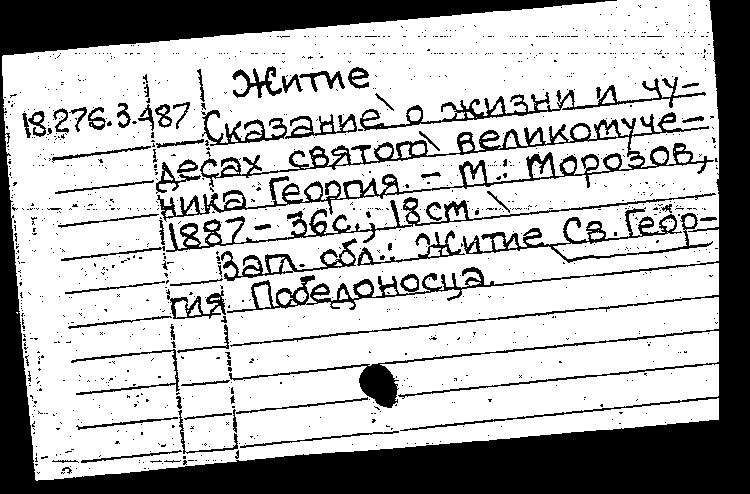 Житие
18.276.3.487 Сказание о жизни и чу-
десах святого великомуче-
ника Георгия. - М.: Морозов,
1887. - 36с.; 18см.
Загл. обл.: Житие Св. Геор-
гия Победоносца.